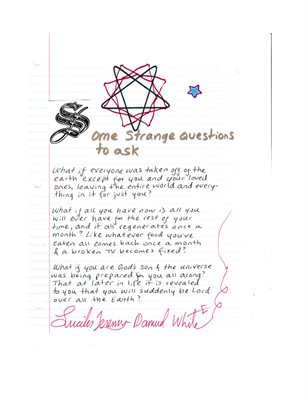 Some Strange Questions
to ask
What if everyone was taken off of the
earth except for you and your loved
ones, leaving the entire world and every-
thing in it for just you?
What if all you have now is all you
will ever have for the rest of your
time, and it all regenerates once a
month? Like whatever food you've
eaten all comes back once a month
& a broken TV becomes fixed?
What if you are God's son & the universe
was being prepared for you all along?
That at later in life it is revealed
to you that you will suddenly be Lord
over all the Earth?
Jeremy Damud White